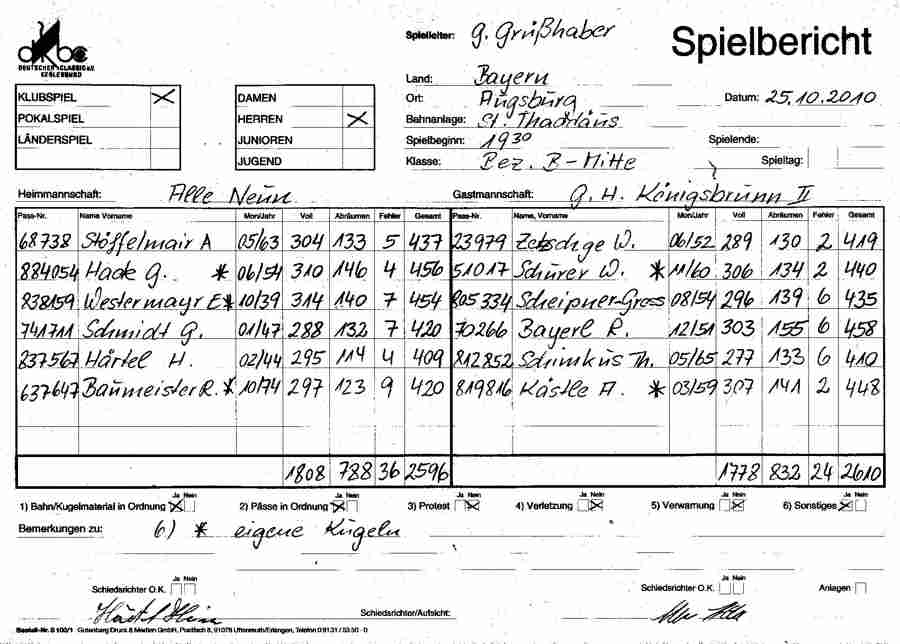 dkbc
DEUTSCHER CLASSIC e.V.
KEGLERBUND
Spielleiter: G. Grüßhaber
Spielbericht
Land: Bayern
Ort: Augsburg Datum: 25.10.2010
Bahnanlage: St. Thaddäus
Spielbeginn: 19³⁰ Spielende:
Klasse: Bez. B-Mitte Spieltag:
KLUBSPIEL X
POKALSPIEL
LÄNDERSPIEL
DAMEN
HERREN X
JUNIOREN
JUGEND
Heimmannschaft: Alle Neun Gastmannschaft: G. H. Königsbrunn II
Pass-Nr. Name Vorname Mon/Jahr Voll Abräumen Fehler Gesamt Pass-Nr. Name, Vorname Mon/Jahr Voll Abräumen Fehler Gesamt
68738 Stöffelmair A 05/63 304 133 5 437 23979 Zetzschge W. 06/52 289 130 2 419
884054 Haak G. * 06/54 310 146 4 456 51017 Schürer W. * 11/60 306 134 2 440
838159 Westermayr E * 10/39 314 140 7 454 805334 Scheipner-Gross 08/54 296 139 6 435
741711 Schmidt G. 01/47 288 132 7 420 70266 Bayerl R. 12/51 303 155 6 458
237567 Härtel H. 02/44 295 114 4 409 812852 Schimkus Th. 05/65 277 133 6 410
637647 Baumeister R. * 10/74 297 123 9 420 819816 Kästle A. * 03/59 307 141 2 448
1808 788 36 2596 1778 832 24 2610
Ja Nein Ja Nein Ja Nein Ja Nein Ja Nein Ja Nein
1) Bahn/Kugelmaterial in Ordnung X 2) Pässe in Ordnung X 3) Protest X 4) Verletzung X 5) Verwarnung X 6) Sonstiges X
Bemerkungen zu: 6) * eigene Kugeln
Ja Nein Ja Nein
Schiedsrichter O.K. Schiedsrichter O.K. Anlagen
Schiedsrichter/Aufsicht:
Bestell-Nr. S 100/1 Gutenberg Druck & Medien GmbH, Postfach 8, 91078 Uttenreuth/Erlangen, Telefon 0 91 31 / 53 50 - 0